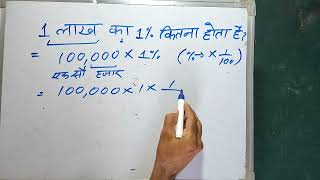 1 लाख का 1% कितना होता है?
= 100,000 × 1% (% → × 1/100)
एक सौ हजार
= 100,000 × 1 × 1/